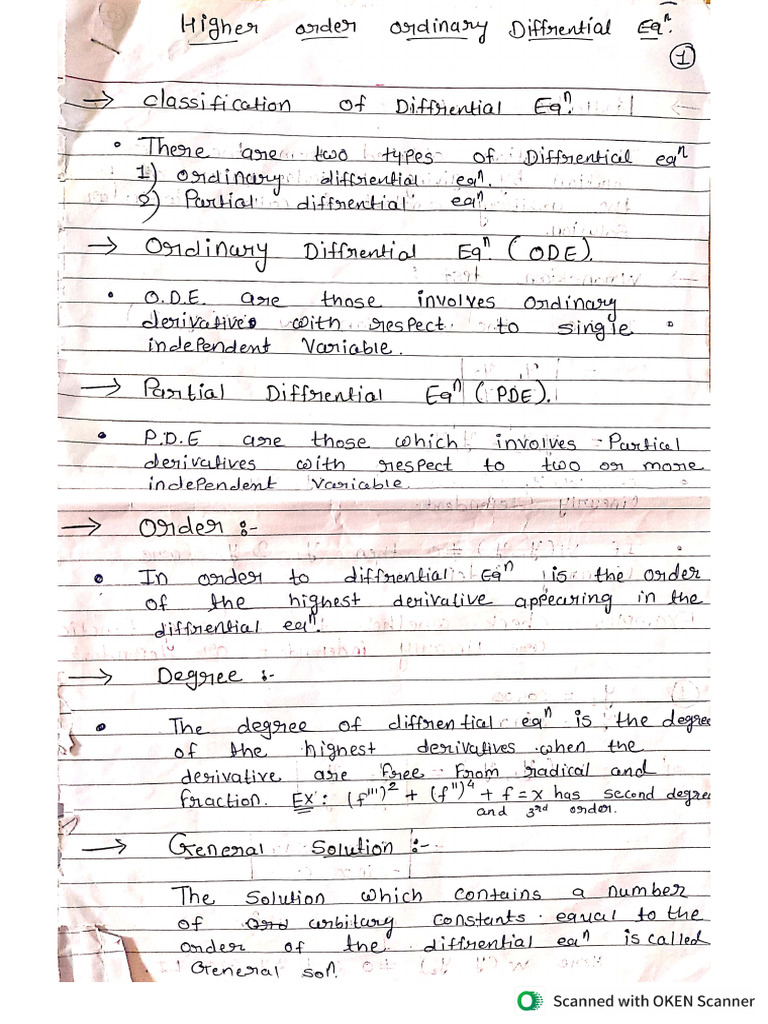 Higher order ordinary Diffrential Eqⁿ.
1
→ Classification of Diffrential Eqⁿ.
• There are two types of Diffrential eqⁿ
1) ordinary diffrential eqⁿ.
2) Partial diffrential eqⁿ.
→ Ordinary Diffrential Eqⁿ. (ODE).
• O.D.E. are those involves ordinary
derivatives with respect to single
independent variable.
→ Partial Diffrential Eqⁿ (PDE).
• P.D.E are those which involves Partical
derivatives with respect to two or more
independent variable.
→ Order :-
• In order to diffrential Eqⁿ is the order
of the highest derivative appearing in the
diffrential eqⁿ.
→ Degree :-
• The degree of diffrential eqⁿ is the degree
of the highest derivatives when the
derivative are free from radical and
fraction. EX : (f''')² + (f'')⁴ + f = x has second degree
and 3rd order.
→ General Solution :-
The Solution which contains a number
of arbitary constants equal to the
order of the diffrential eqⁿ is called
General solⁿ.
Scanned with OKEN Scanner